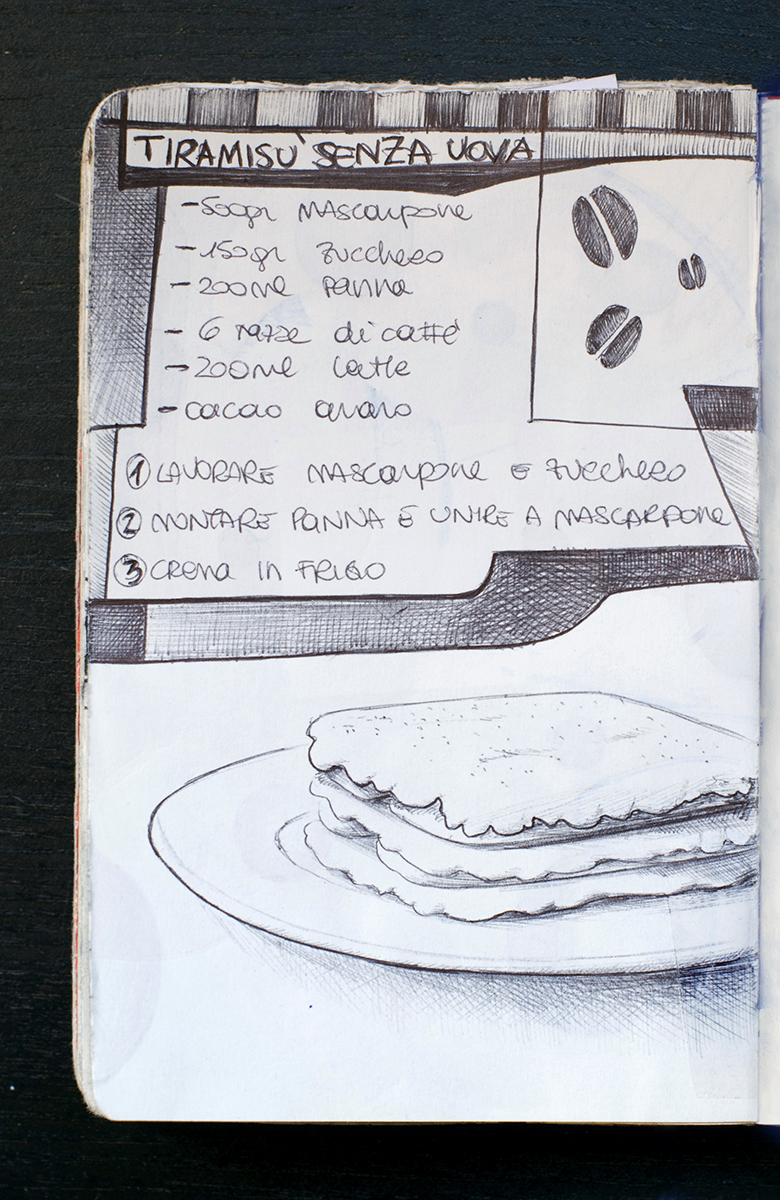 TIRAMISU' SENZA UOVA
- 500gr MAscarpone
- 150gr zucchero
- 200ml panna
- 6 tazze di caffè
- 200ml latte
- cacao amaro
1 LAVORARE MAScarpone E zucchero
2 MONTARE PANNA E UNIRE A MASCARPONE
3 crema in FRIGO